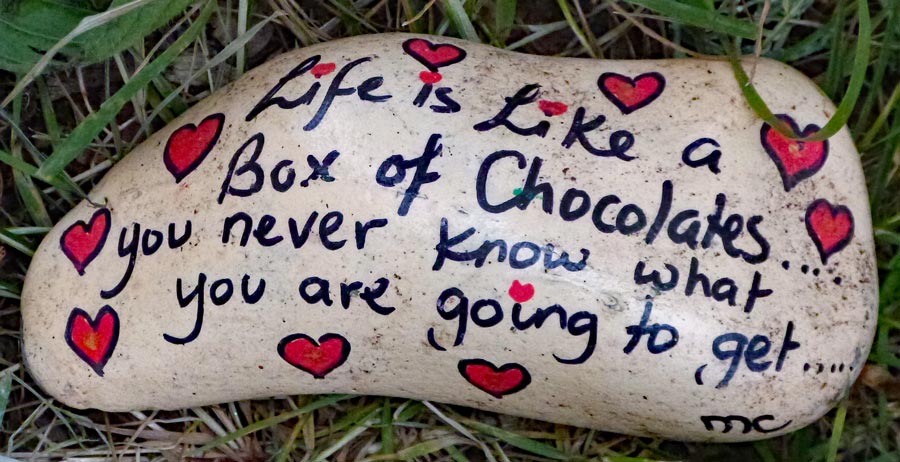 Life is Like a
Box of Chocolates.....
you never know what
you are going to get.....
mc